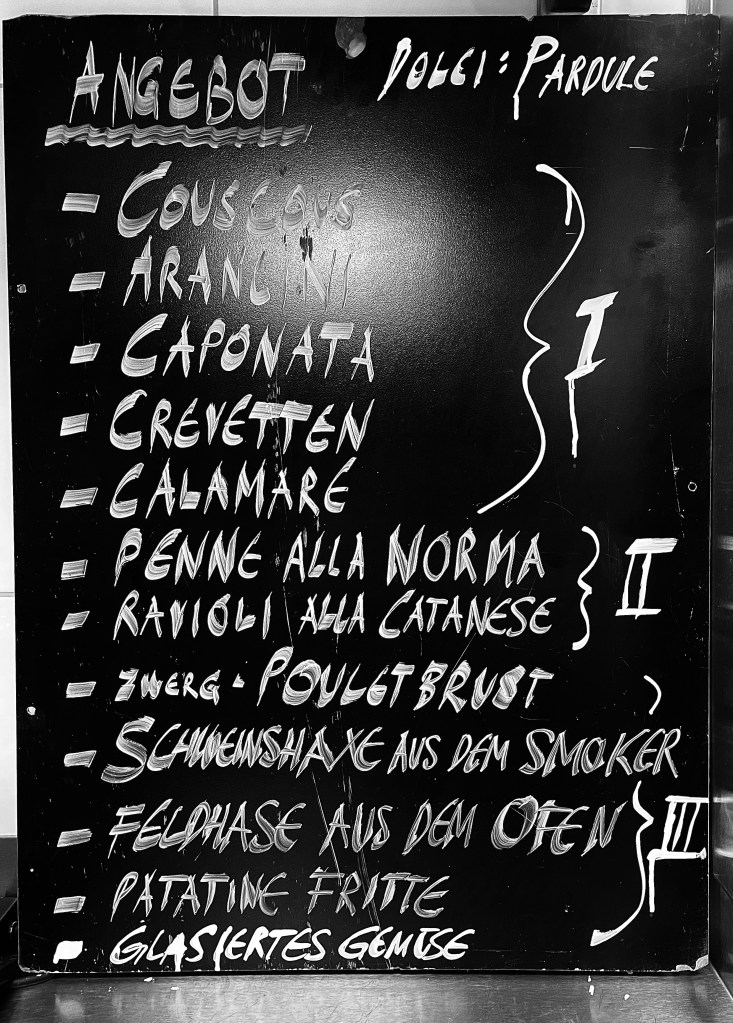 ANGEBOT
DOLCI: PARDULE
- COUSCOUS
- ARANCINI
- CAPONATA
- CREVETTEN
- CALAMARE
I
- PENNE ALLA NORMA
- RAVIOLI ALLA CATANESE
II
- ZWERG-POULETBRUST
- SCHWEINSHAXE AUS DEM SMOKER
- FELDHASE AUS DEM OFEN
- PATATINE FRITTE
- GLASIERTES GEMÜSE
III